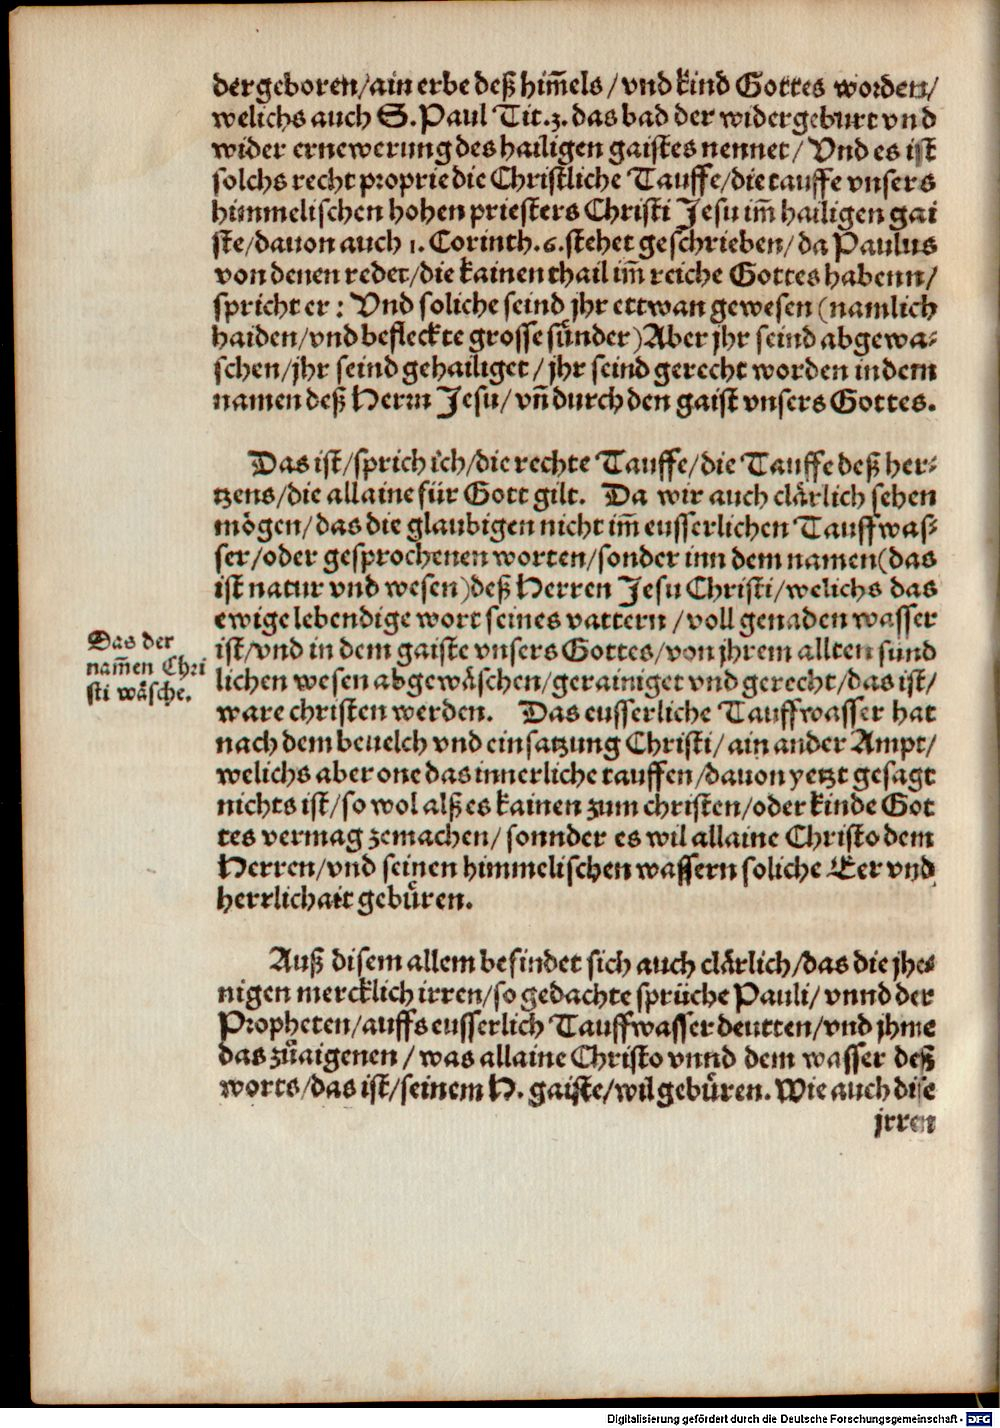 dergeboren/ain erbe deß him̃els/vnd kind Gottes worden/
welichs auch S. Paul Tit.3. das bad der widergeburt vnd
wider ernewerung des hailigen gaistes nennet/Vnd es ist
solchs recht proprie die Christliche Tauffe/die tauffe vnsers
himmelischen hohen priesters Christi Jesu im̃ hailigen gai
ste/dauon auch 1. Corinth.6.stehet geschrieben/da Paulus
von denen redet/die kainen thail im̃ reiche Gottes habenn/
spricht er: Vnd soliche seind jhr ettwan gewesen (namlich
haiden/vnd befleckte grosse sünder) Aber jhr seind abgewa-
schen/jhr seind gehailiget/jhr seind gerecht worden in dem
namen deß Herrn Jesu/vñ durch den gaist vnsers Gottes.
Das ist/sprich ich/die rechte Tauffe/die Tauffe deß her-
tzens/die allaine für Gott gilt. Da wir auch clärlich sehen
mögen/das die glaubigen nicht im̃ eusserlichen Tauffwas-
ser/oder gesprochenen worten/sonder inn dem namen(das
ist natur vnd wesen)deß Herren Jesu Christi/welichs das
ewige lebendige wort seines vattern/voll genaden wasser
ist/vnd in dem gaiste vnsers Gottes/von jhrem allten sünd
lichen wesen abgewäschen/gerainiget vnd gerecht/das ist/
ware christen werden. Das eusserliche Tauffwasser hat
nach dem beuelch vnd einsatzung Christi/ain ander Ampt/
welichs aber one das innerliche tauffen/dauon yetzt gesagt
nichts ist/so wol alß es kainen zum christen/oder kinde Got
tes vermag zemachen/sonnder es wil allaine Christo dem
Herren/vnd seinen himmelischen wassern soliche Eer vnd
herrlichait gebüren.
Das der
nam̃en Chri
sti wäsche.
Auß disem allem befindet sich auch clärlich/das die jhe-
nigen mercklich irren/so gedachte sprüche Pauli/vnnd der
Propheten/auffs eusserlich Tauffwasser deutten/vnd jhme
das zůaigenen/was allaine Christo vnnd dem wasser deß
worts/das ist/seinem H. gaiste/wil gebüren. Wie auch dise
jrren
Digitalisierung gefördert durch die Deutsche Forschungsgemeinschaft - DFG